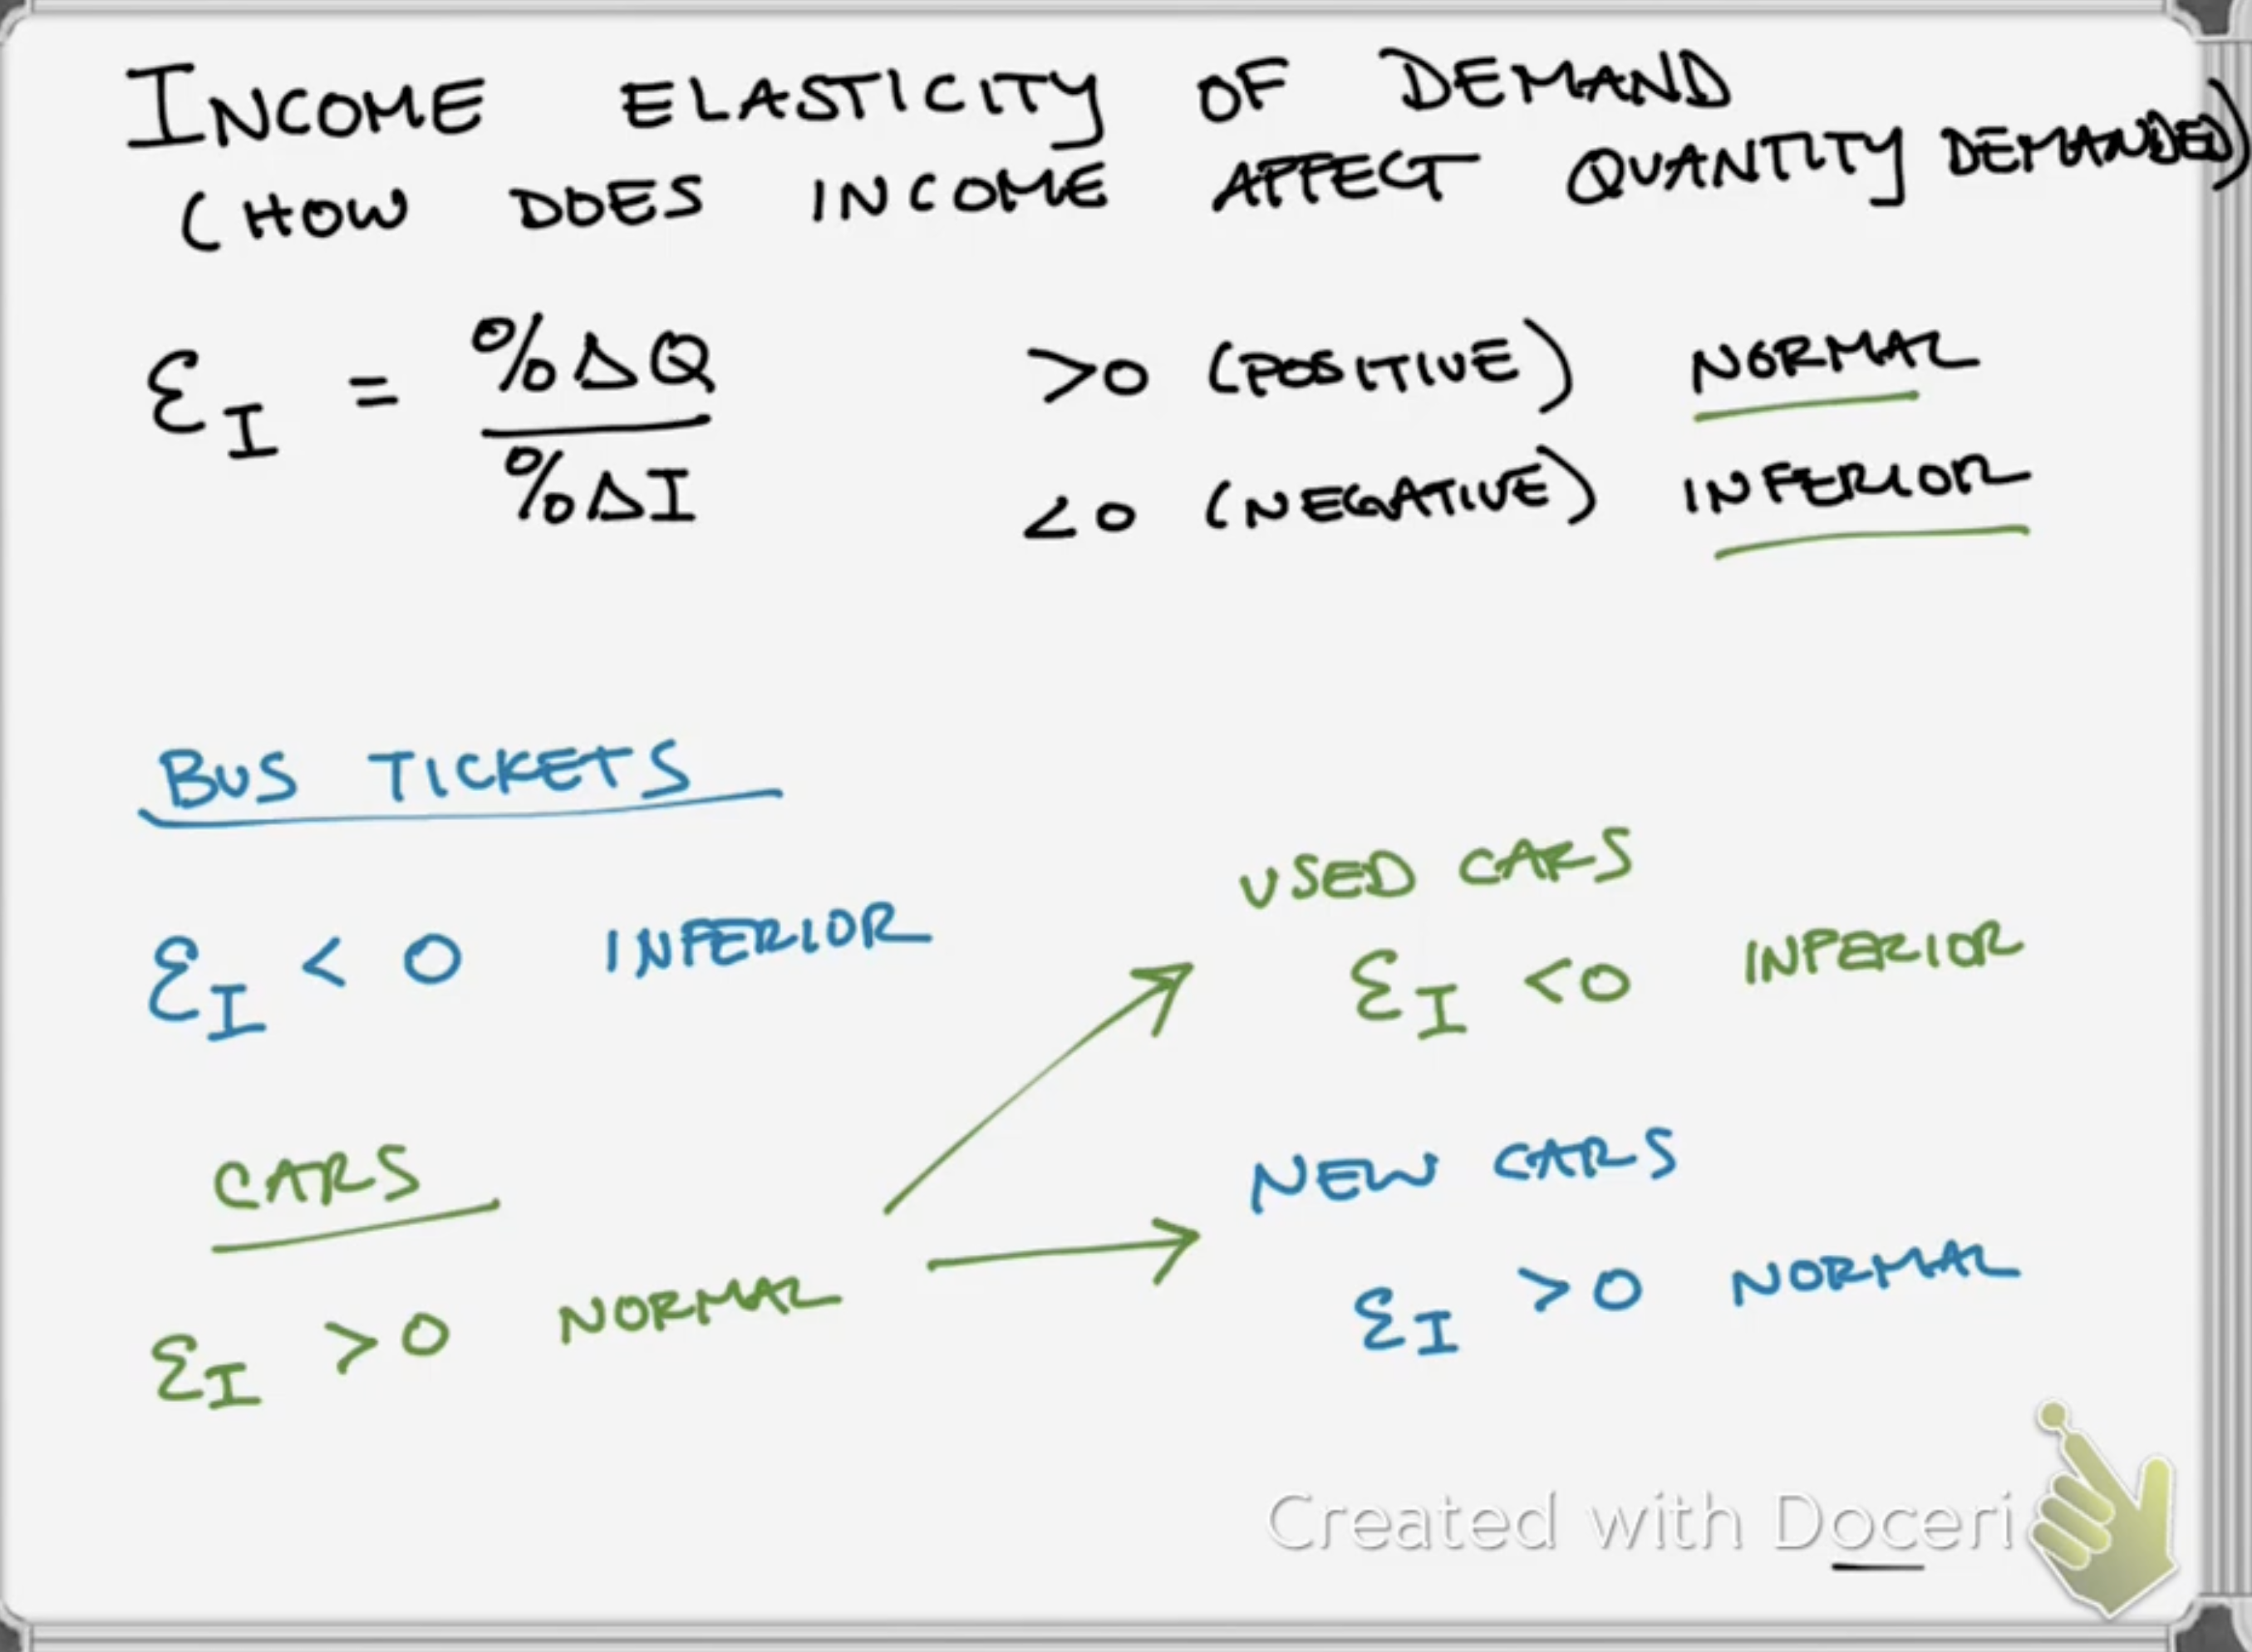 INCOME ELASTICITY OF DEMAND
(HOW DOES INCOME AFFECT QUANTITY DEMANDED)
ℰI = %ΔQ / %ΔI
>0 (POSITIVE) NORMAL
<0 (NEGATIVE) INFERIOR
BUS TICKETS
ℰI < 0 INFERIOR
CARS
ℰI > 0 NORMAL
USED CARS
ℰI <0 INFERIOR
NEW CARS
ℰI >0 NORMAL
Created with Doceri